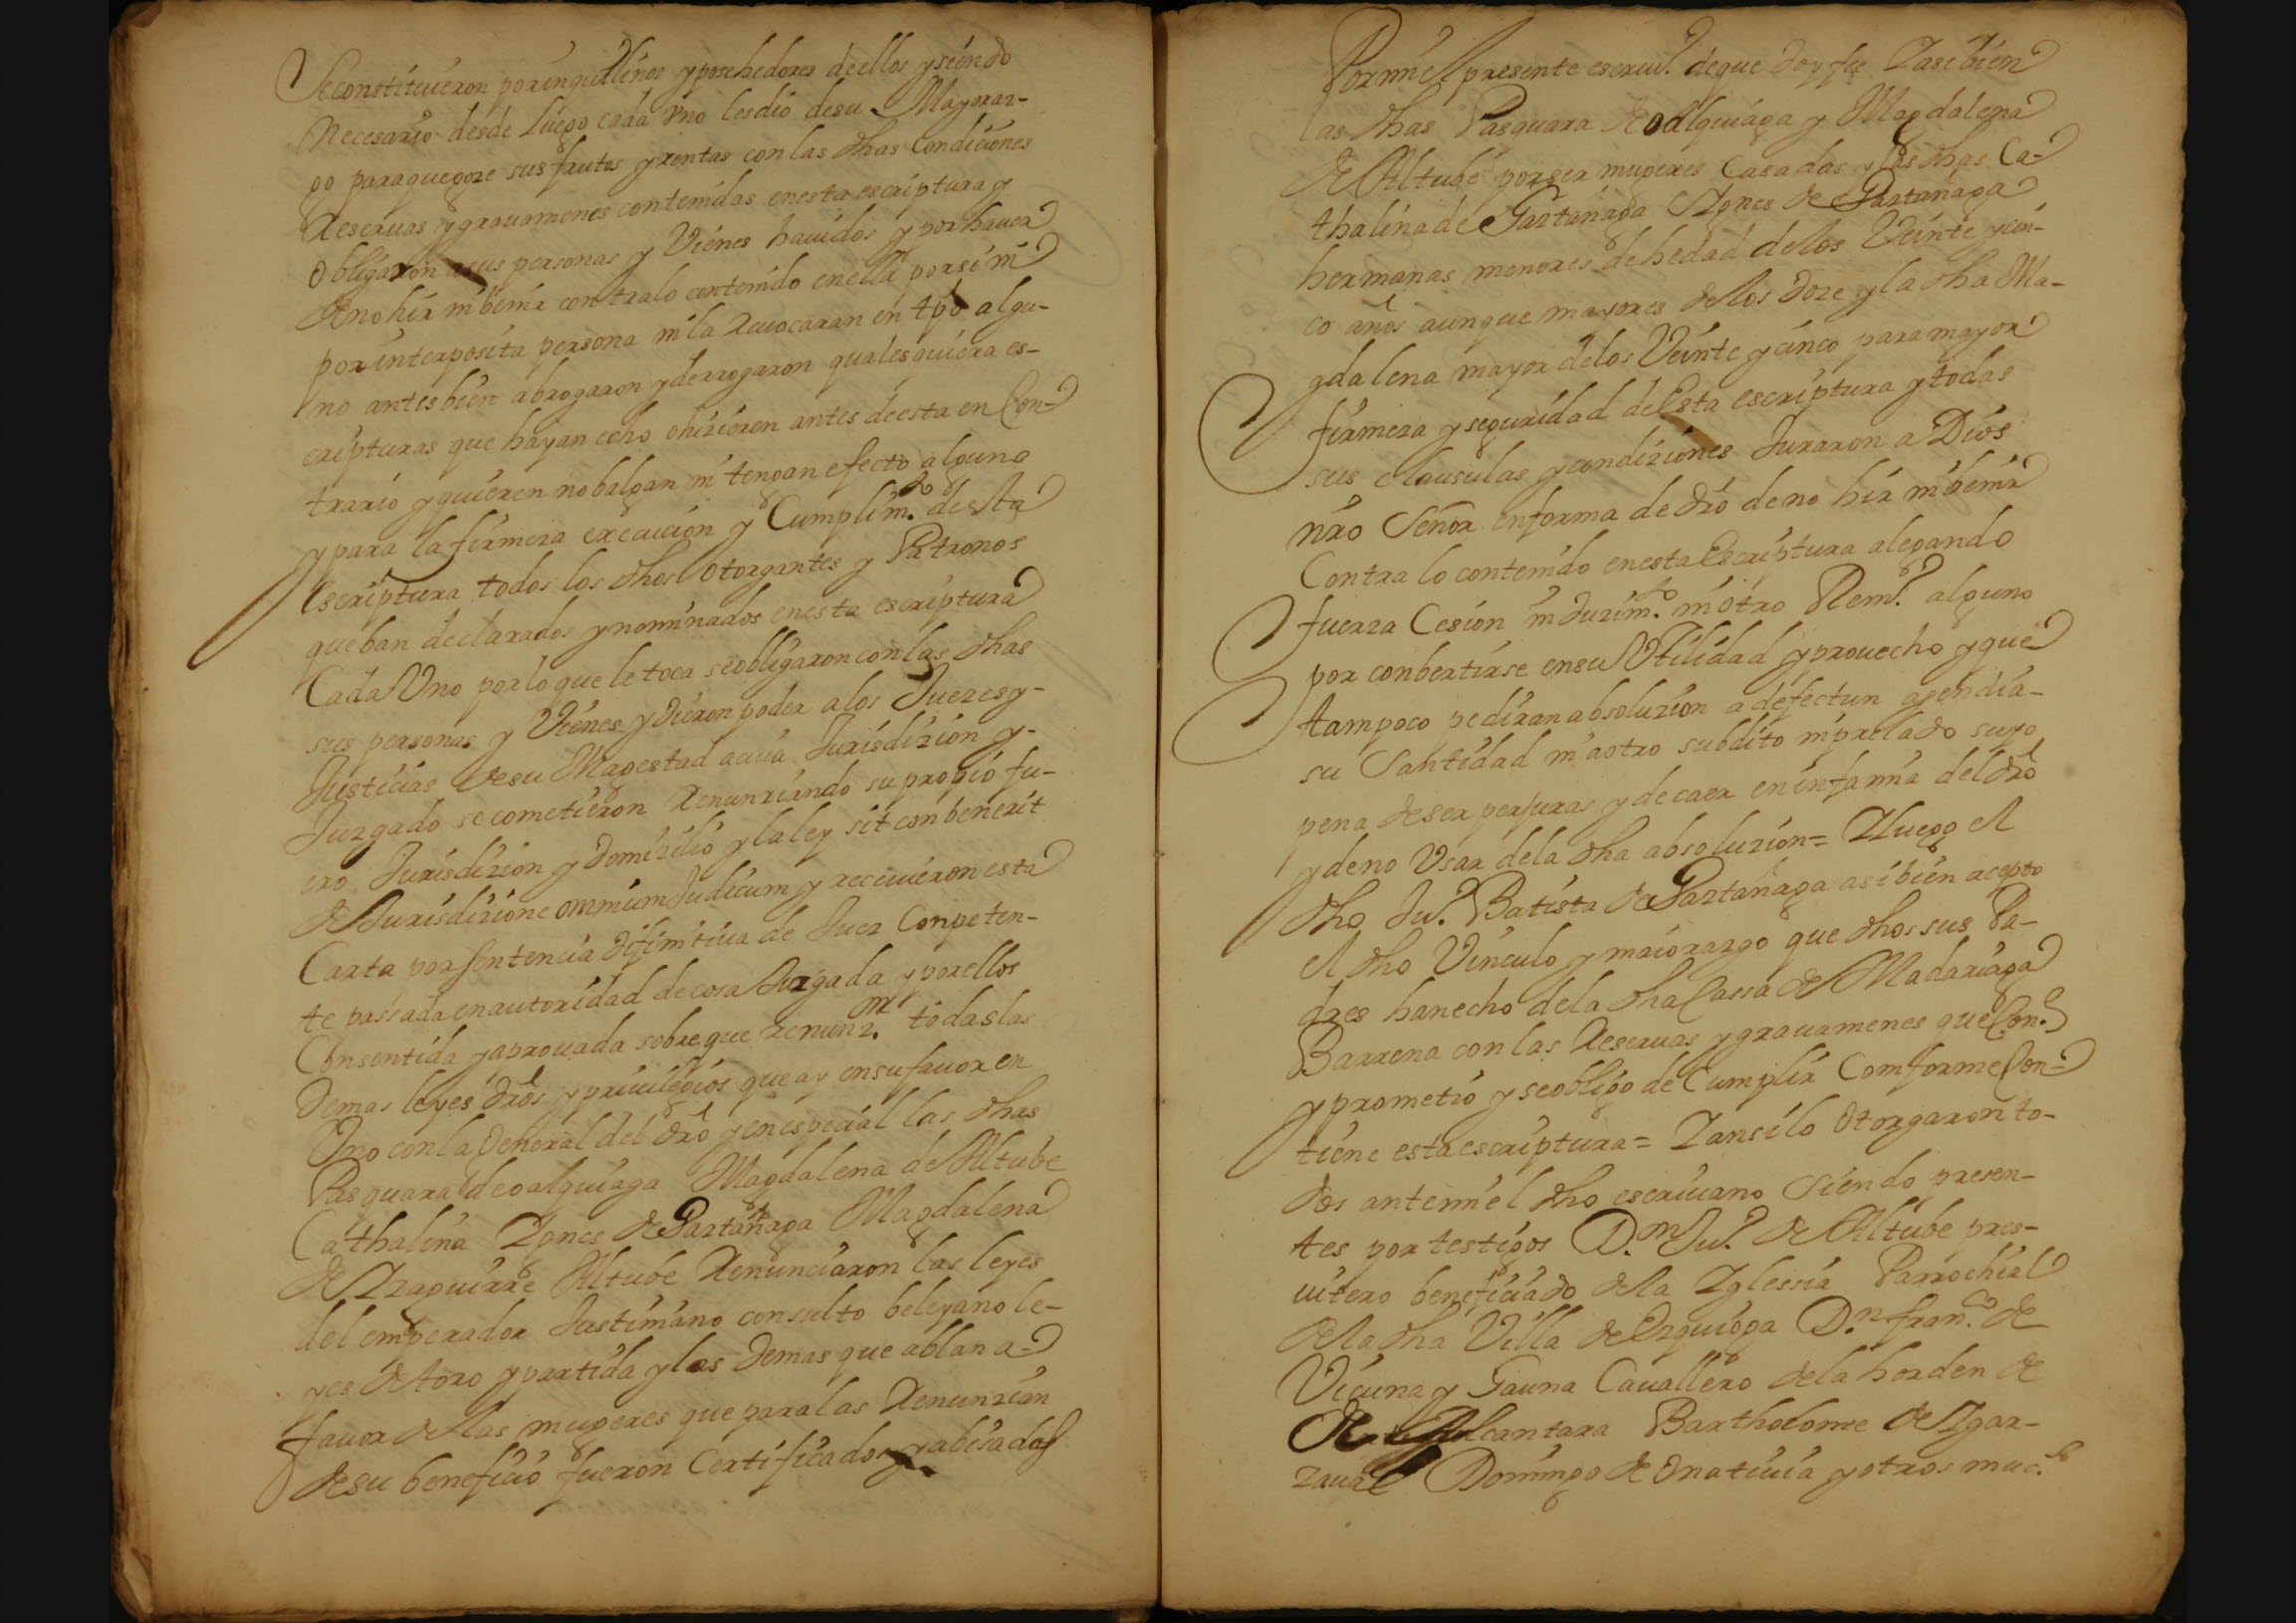 Seconstituieron porinquillinos yposehedores deellos ysiendo
Necesario desde Luego cada Vno lesdio desu Mayoraz-
go paraquegoze sus frutos yrentas con las dhas Condiciones
Reseruas ygrauamenes contenidas enesta escriptura y
Obligaron asus personas y Vienes hauidos y por hauer
de no hir ni benir contralo contenido enella porsi ni
por interposita persona ni la Reuocaran en tpo algu-
no antes bien abrogaron yderrogaron qualesquiera es-
cripturas que hayan echo ohizieren antes deesta en Con-
trario yquieren nobalgan ni tengan efecto alguno
ypara la firmeza execucion y Cumplim.to desta
Escriptura todos los dhos Otorgantes y Patronos
queban declarados ynominados enesta escriptura
Cada Vno porlo que le toca seobligaron con las dhas
sus personas y Vienes ydieron poder alos Juezes y-
Justicias desu Magestad acuia Jurisdizion y-
Juzgado se cometieron Renunziando su propio fu-
ero Jurisdizion y domizilio ylaley sit conbenerit
de Jurisdizione omnium Judicum yreceuieron esta
Carta por sentencia difinitiua de Juez Conpeten-
te passada enautoridad decosa Juzgada yporellos
Consentida yaprouada sobreque renunz.n todas las
Demas leyes dros ypriuilegios queay ensufauor en
Vno con la General del dro yenespecial las dhas
Pasquara deoalquiaga Magdalena de Altube
Cathalina Ygnes de Gaztañaga Magdalena
de Yzaguirre Altube Renunciaron las leyes
del emperador Justiniano consulto beleyano le-
yes de toro ypartida ylas demas que ablan a-
fauor de las mugeres que paralas Renunzian
desu beneficio fueron Certificados yabisadas
Por mi el presente escriu.o deque doy fee Yasibien
las dhas Pasquara de odlquiaga y Magdalena
de Altube por ser mugeres Casadas y las dhas Ca-
thalina de Gaztañaga Ygnes de Gaztañaga
hermanas menores dehedad delos Veinte ycin-
co años aunque mayores delos doze yla dha Ma-
gdalena mayor delos Veinte ycinco para mayor
firmeza yseguridad de Esta escriptura ytodas
sus clausulas ycondiziones Juraron a Dios
nro Señor enforma de dro deno hir ni benir
Contra lo contenido enesta Escriptura alegando
fuerza Cesion ni Jurim.to ni otro Rem.o alguno
por conbertirse ensu Vtilidad yprouecho yque
tampoco pediran absoluzion adefectun agendia-
su Santidad ni aotro subdito niprelado suyo
pena deser perjuras ydecaer eninfamia deldro
ydeno Vsar dela dha absoluzion= Yluego el
dho Ju.o Batista de Gaztañaga asibien acepto
el dho Vinculo y maiorazgo que dhos sus Pa-
dres hanecho dela dha Cassa de Madariaga
Barrena con las Reseruas ygrauamenes que Con.e
yprometio yseobligo de Cumplir Comforme Con-
tiene estaescriptura= Yansilo Otorgaron to-
dos antemi el dho escriuano siendo presen-
tes por testigos D.n Ju.o de Altube pres-
uitero beneficiado dela Yglessia Parrochial
dela dha Villa de Ezquioga D.n fran.co de
Vicuna y Gauna Cauallero dela horden de
de Alcantara Bartholome de Ygar-
zaual Domingo de Onatiuia yotros muc.s